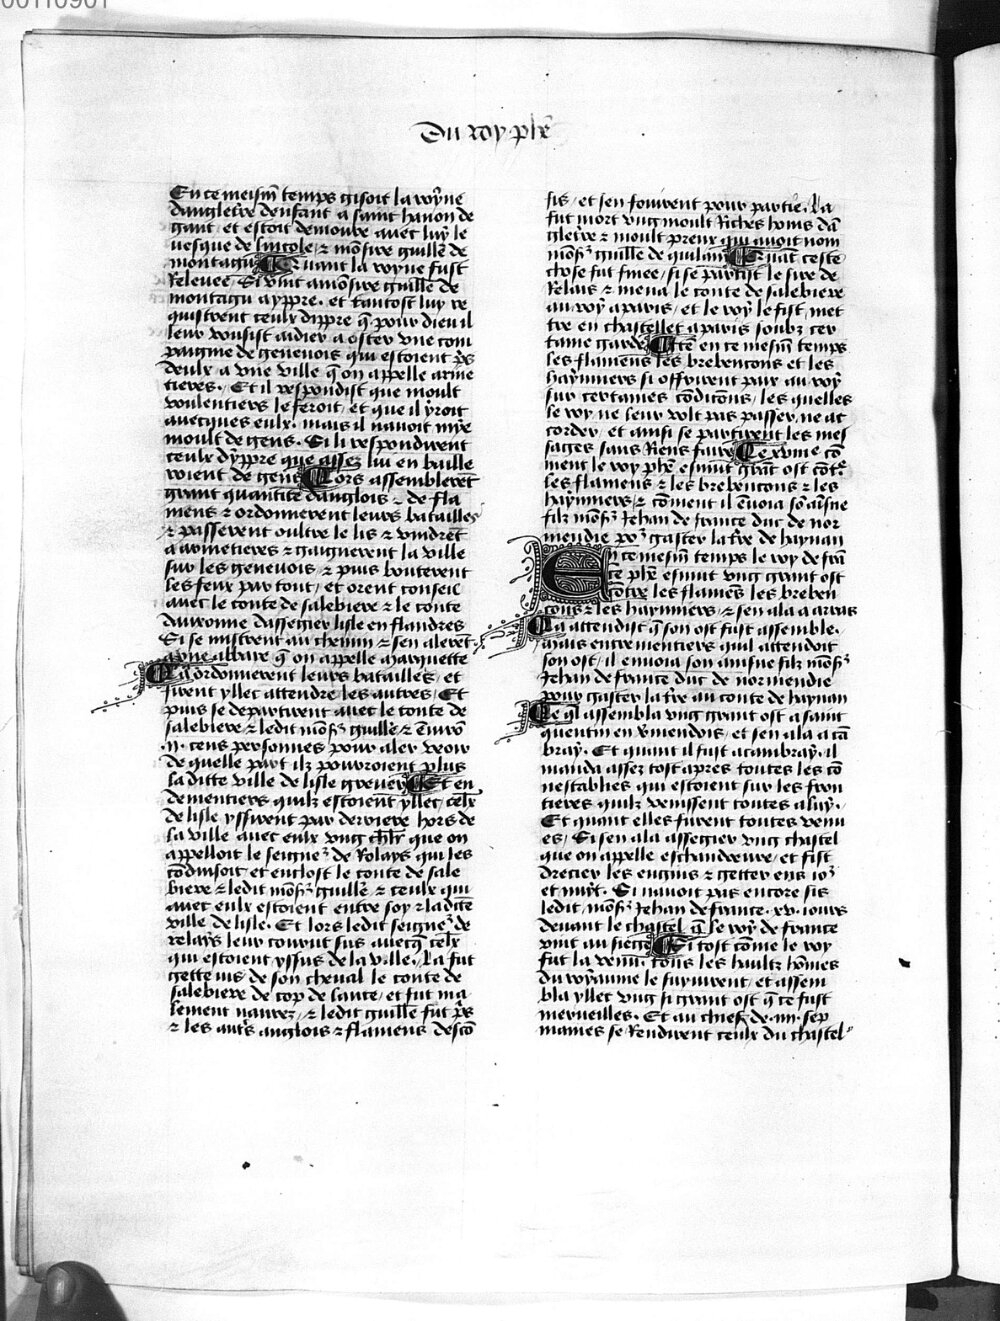 00110901
Du roy phē
En ce meism̄ temps gisoit la royne
dangletr̄e denfant a saint hanon de
gant / et estoit demoure auec luy le
uesque de lincole / ⁊ mōs̄ire guille de
montagu Auant la royne fust
Releuee / Si vint a mōsire guille de
montagu a yppre · et tantost luy re
quistrent ceulx dippre q̄ pour dieu il
leur voulsist aidier a oster vne com
paignie de geneuois qui estoient p̄s
deulx a vne ville q̄ on appelle armē
tieres · Et il respondist que moult
voulentiers le feroit / et que il yroit
auecques eulx · mais il nauoit mye
moult de gens · Si li respondirent
ceulx dyppre que assez lui en baille
roient de gens Lors assemblerēt
grant quantite danglois ⁊ de fla
mens ⁊ ordonnerent leurs batailles
⁊ passerent oultre le lis ⁊ vindrēt
a armetieres ⁊ gaignerent la ville
sur les geneuois ⁊ puis bouterent
les feux par tout / et orent conseil
auec le conte de salebiere ⁊ le conte
dauronne dassegier lisle en flandres
Si se mistrent au chemin ⁊ sen alerēt
a vne abbaie q̄ on appelle marquette
La ordonnerent leurs batailles / et
furent yllec attendre les autres / Et
puis se departirent auec le conte de
salebiere ⁊ ledit mōsr̄ guille ⁊ ēuirō
·ij· cens personnes pour aler veoir
de quelle part ilz pourroient plus
la ditte ville de lisle greuer Et en
dementiers quilz estoient yllec / celx
de lisle yssirent par derriere hors de
la ville auec eulx vng chl̄r que on
appelloit le seignr̄ de Rolays qui les
cōdinsoit et enclost le conte de sale
biere ⁊ ledit mōsr̄ guille ⁊ ceulx qui
auec eulx estoient entre soy ⁊ la dite
ville de lisle · Et lors ledit seignr̄ de
relays leur courut sus auecq̄ celx
qui estoient yssus de la ville · La fut
gette ius de son cheual le conte de
salebiere de cop de lance / et fut ma
lement naurez / ⁊ ledit guille fut p̄s
⁊ les aut̄s anglois ⁊ flamens descō
fis / et sen fouirent pour partie · La
fut mort vng moult Riches homs dā
gletr̄e ⁊ moult preux qui auoit nom
mōsr̄ guille de quilan Quāt ceste
chose fut finee / si se partist le sire de
Relais ⁊ mena le conte de salebiere
au roy a paris / et le roy le fist met
tre en chastellet a paris soubz cer
taine garde Itē en ce mesm̄ temps
les flamens les brebencons et les
haynniers si offrirent paix au roy
sur certaines cōdicōns / les quelles
le roy ne leur volt pas passer / ne ac
corder / et ainsi se partirent les mes
sages sans Riens faire Le xviiie cō
ment le roy phē esmut grāt ost cōtr̄e
les flamens ⁊ les brebencons ⁊ les
haynniers / ⁊ cōment il enuoia sō aisne
filz mōsr̄ Jehan de france duc de nor
mendie por̄ gaster la tr̄e de haynau
En ce mesm̄ temps le roy de frā
ce phē esmut vng grant ost
cōtre les flamēs les breben
cons ⁊ les haynniers / ⁊ sen ala a arras
La attendist q̄ son ost fust assemble ·
mais entrementiers quil attendoit
son ost / il enuoia son aisne filz mōsr̄
Jehan de france duc de normendie
pour gaster la tr̄e au conte de haynau
Le q̄l assembla vng grant ost a saint
quentin en vermendois / et sen ala a cā
bray · Et quant il fust a cambray / il
manda assez tost apres toutes les cō
nestablies qui estoient sur les fron
tieres quilz venissent toutes a luy ·
Et quant elles furent toutes venu
es / Si sen ala assegier vng chastel
que on appelle eschandeuure / et fist
drecier les engins ⁊ getter ens ior̄
et nuyt · Si nauoit pas encore sis
ledit mōsr̄ Jehan de france · xv · iours
deuant le chastel q̄ le roy de france
vint au siege Si tost cōme le roy
fut la venu / tous les haultz hōmes
du royaume le suyuirent / et assem
bla yllec vng si grant ost q̄ ce fust
merueilles · Et au chief de · iij · sep
maines se Rendirent ceulx du chastel